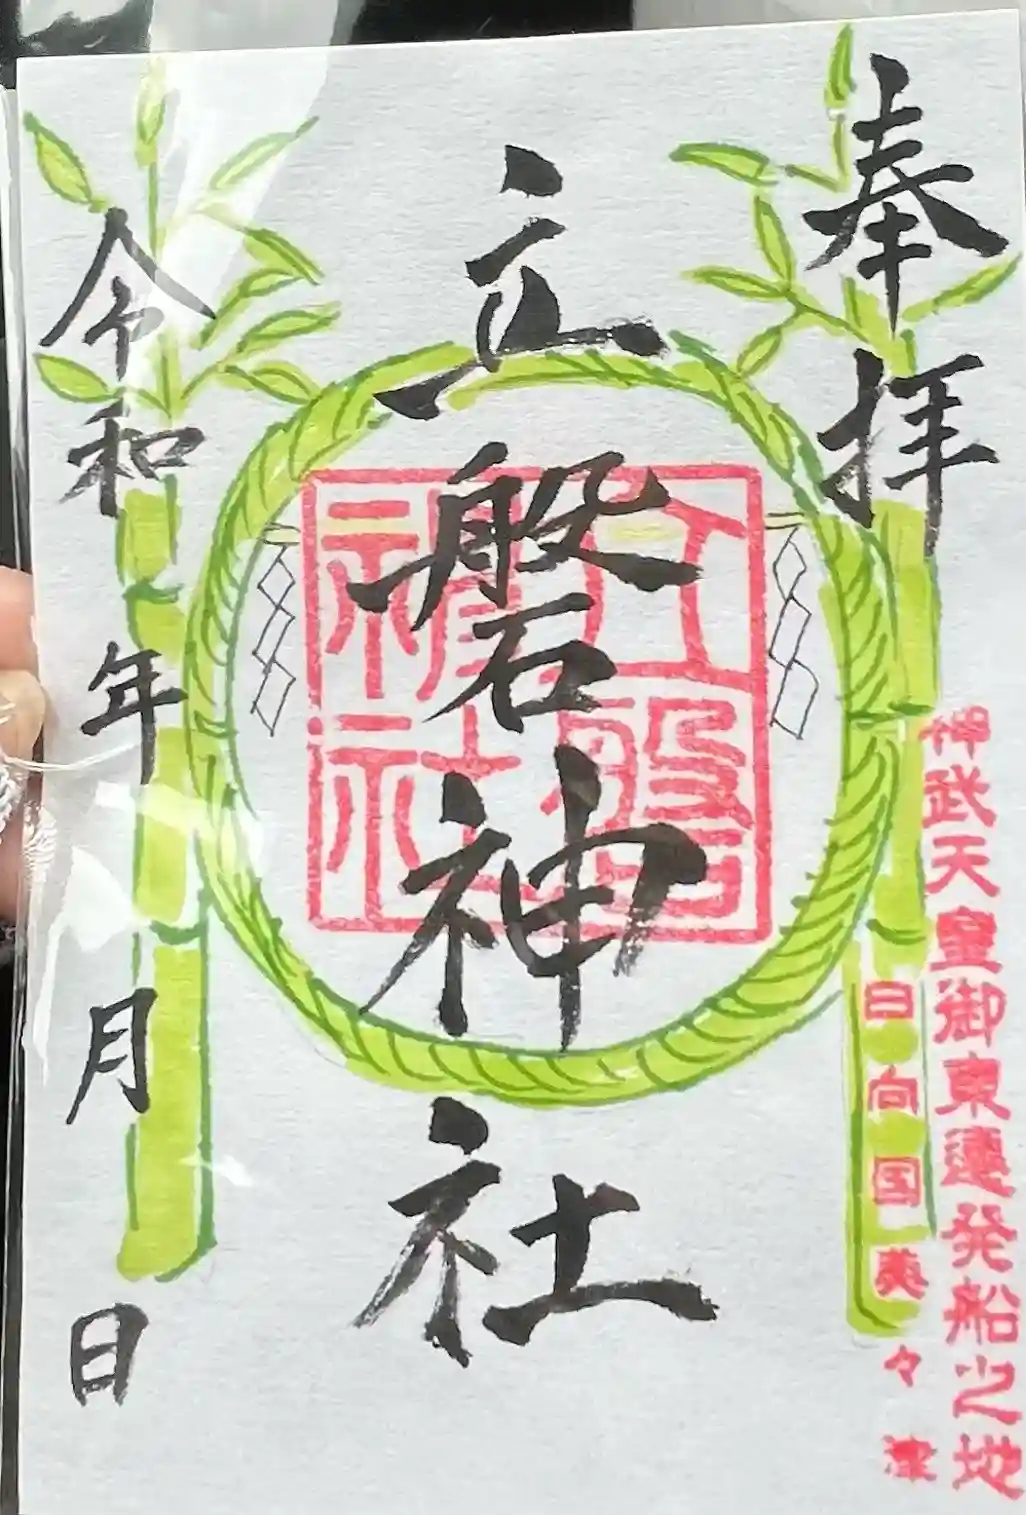 奉拝
神武天皇御東遷発船之地
日向国美々津
立磐神社
立磐神社
令和 年 月 日